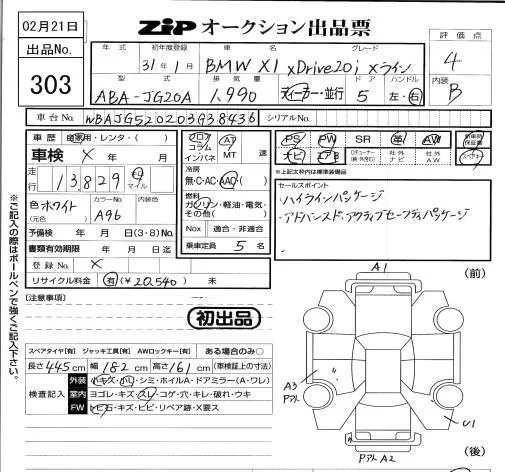 02月21日
ZIP オークション出品票
出品No.
303
評価点
4
内装
B
年式 初年度登録 車名 グレード
31年1月 BMW X1 xDrive20i xライン
型式 排気量 ドア ハンドル
ABA-JG20A 1,990 ディーラー・並行 5 左・右
車台No. WBAJG520203G38436 シリアルNo.
車歴 自家用・レンタ・( )
車検 X 年 月
走行 13829 キロ マイル
色 ホワイト (元色) カラーNo. A96 内装色
予備検 年 月 日(3・8)No.
書類有効期限 年 月 日
登録No. X
リサイクル料金 有(¥20,540) 未
フロア コラム インパネ
AT MT 速
冷房
無・C・AC・AAC・( )
燃料
ガソリン・軽油・電気・その他( )
Nox 適合・非適合
乗車定員 5 名
PS PW SR 革 AW
ナビ エアB 社外ナビ 社外AW
新車時保証書
スペアキー
※上記太枠内は標準装備品
セールスポイント
・ハイラインパッケージ
・アドバンスド、アクティブセーフティパッケージ
※ご記入の際はボールペンで強くご記入下さい。
[注意事項]
初出品
スペアタイヤ[有] ジャッキ工具[有] AWロックキー[有] ある場合のみ○
長さ 445 cm 幅 182 cm 高さ 161 cm (車検証上の寸法)
検査記入
外装 小キズ・小凹・シミ・ホイルA・ドアミラー(A・ワレ)
室内 ヨゴレ・キズ・スレ・コゲ・穴・キレ・破れ・ウキ
FW トビ石・キズ・ヒビ・リペア跡・X要ス
A1
(前)
A3
Pアト
U1
PアトA2
(後)